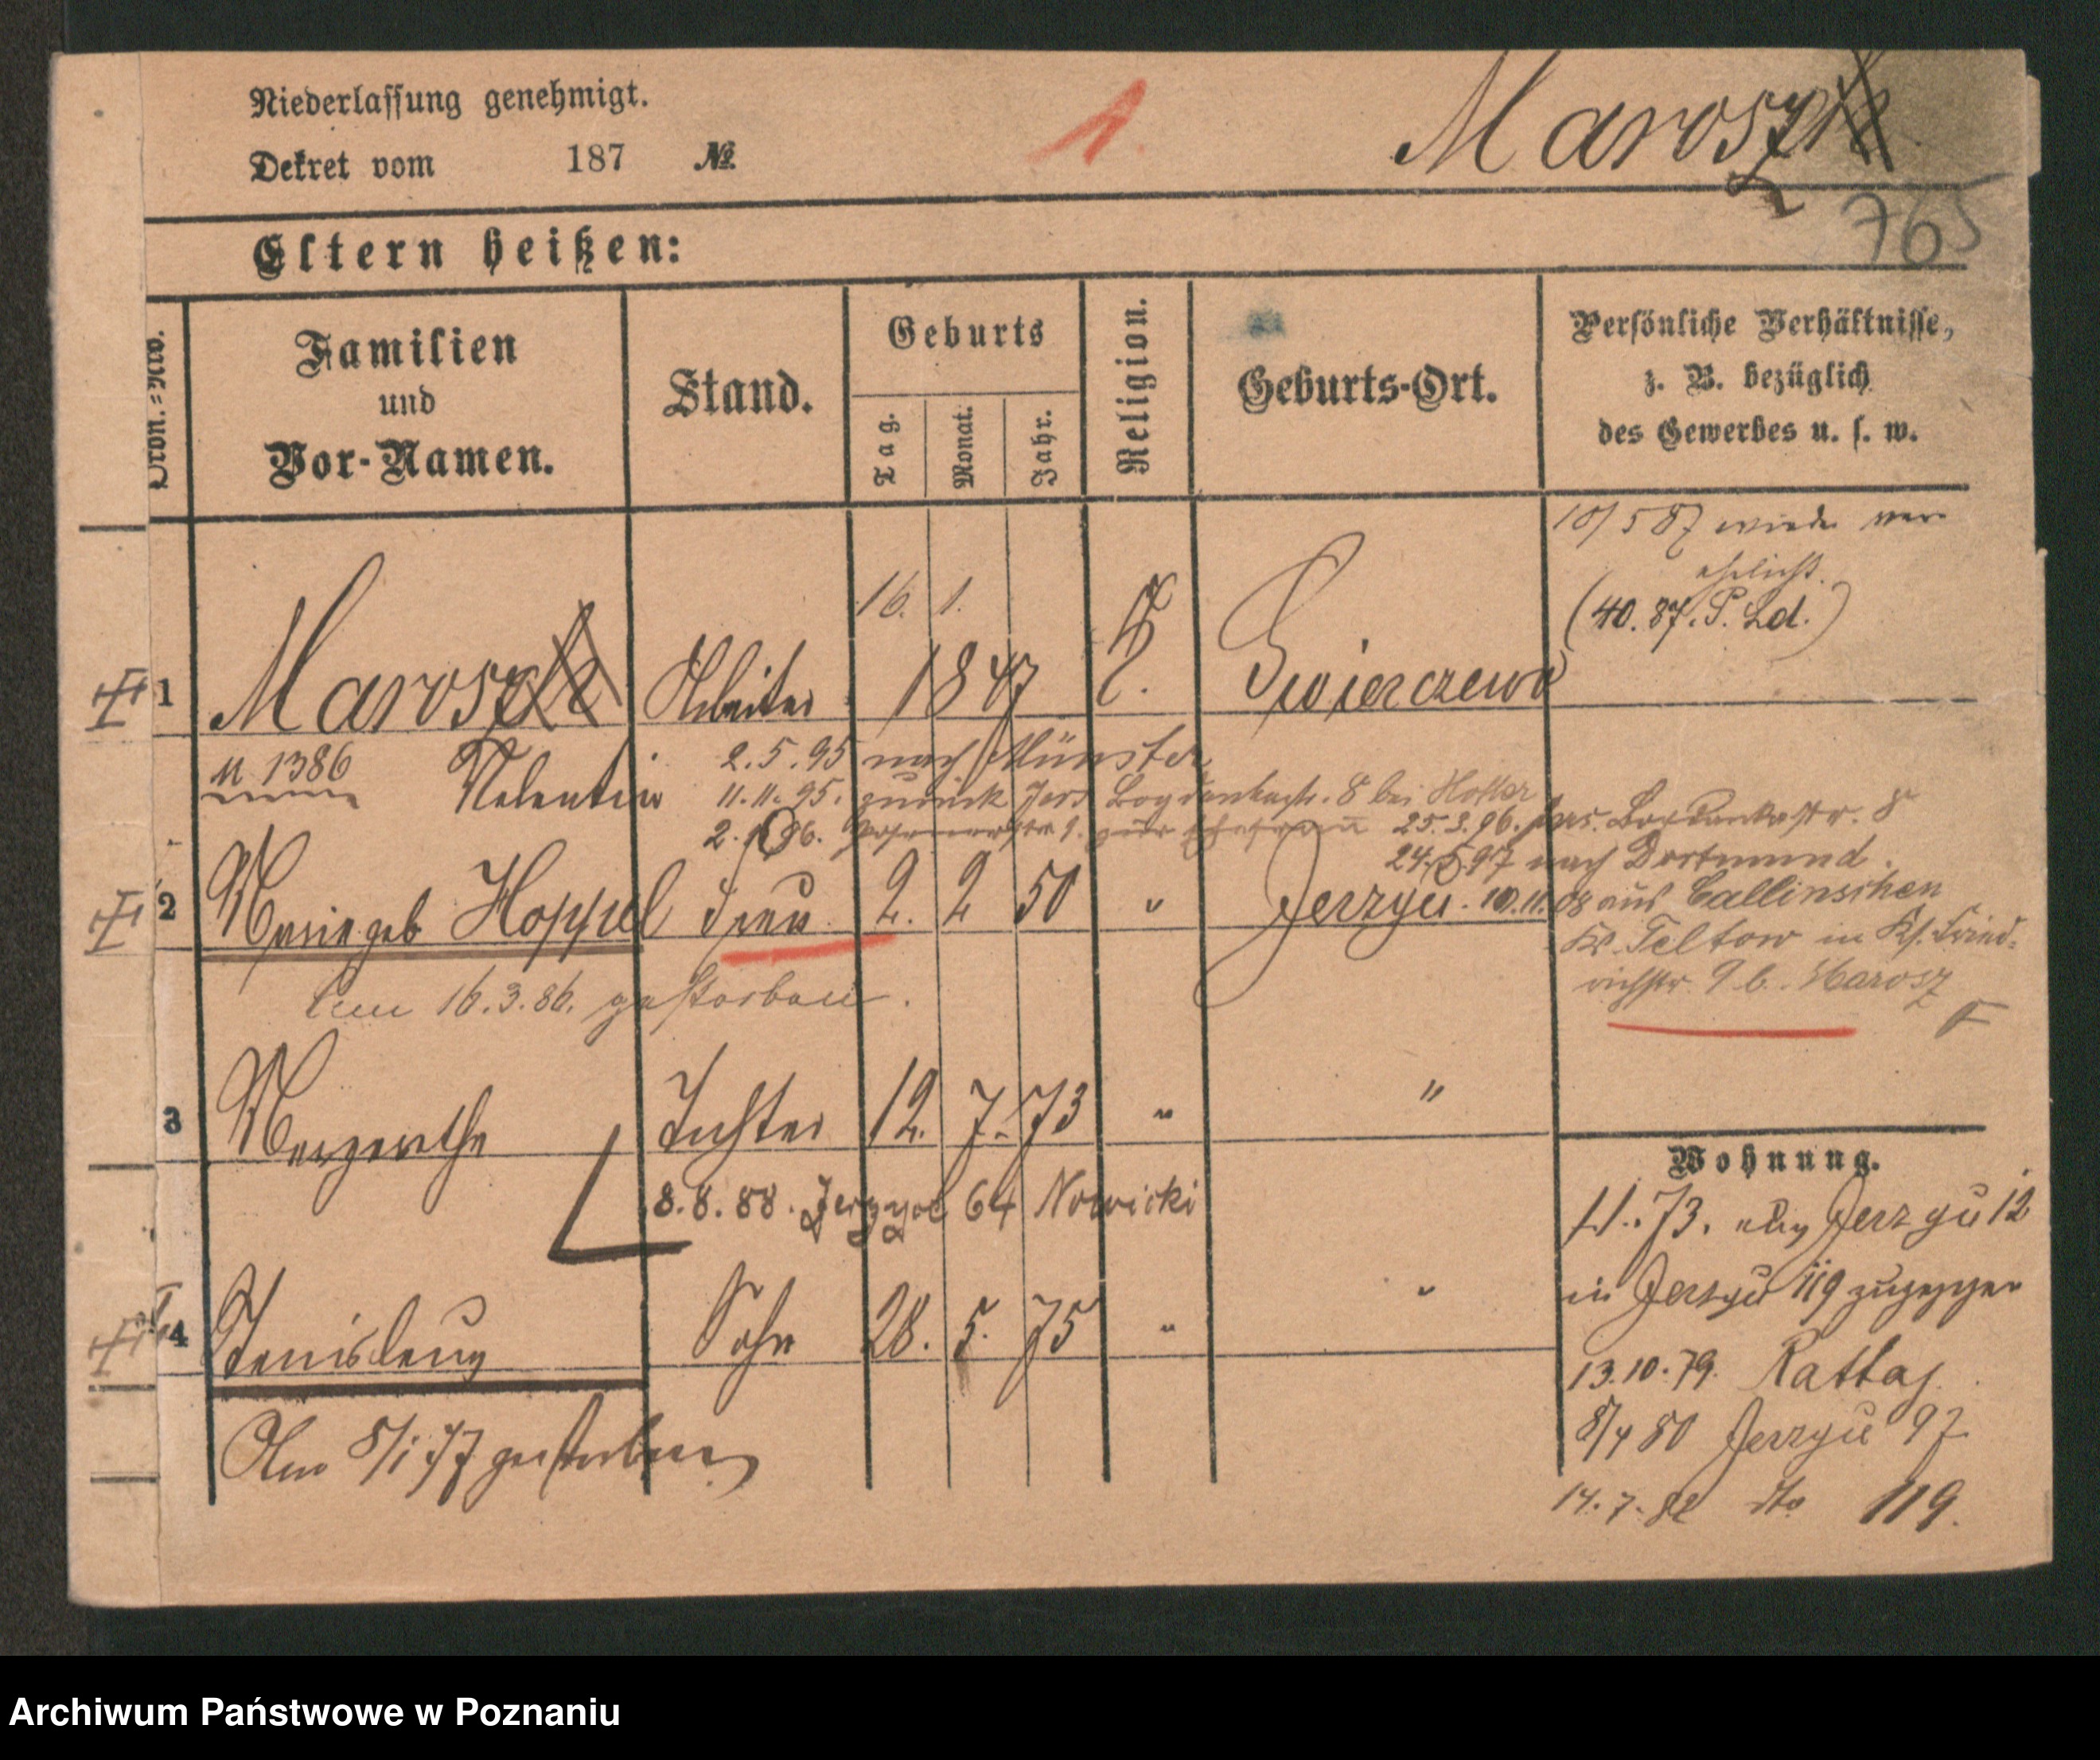 Niederlassung genehmigt.
Dekret vom 187 №
1.
Marosz
765
Eltern heißen:
Ordn.-Nro.
Familien
und
Vor-Namen.
Stand.
Geburts
Tag.
Monat.
Jahr.
Religion.
Geburts-Ort.
Persönliche Verhältnisse,
z. B. bezüglich
des Gewerbes u. s. w.
18/5 87 wieder ver
ehelicht.
(40. 87. P. Ld.)
1 Marosz Arbeiter 16. 1. 1847 Swierczewo
M 1386 Valentin
2.5.95 nach Münster
11.11.95. zurück Jers Bogdankastr. 8 bei
25.3.96. Jers. Bogdankastr. 8
24.5.97 nach Dortmund.
2 Marie geb Hoppel Frau 2. 2 50 " Jerzyce.
10.11.08 aus Callinschen
Kr. Teltow in Ks. Fried-
richstr. 9 b. Marosz
am 16.3.86. gestorben.
3 Margarethe Tochter 12. 7. 73 " "
8.8.88. Jerzyce 64 Nowicki
4 Stanislaus Sohn 28. 5. 75 " "
Am 8/1 77 gestorben
Wohnung.
11. 73. aus Jerzyce 12
in Jerzyce 119 zugezogen
13.10.79. Rattaj.
8/4 80 Jerzyce 97
14.7.82 dto 119.
Archiwum Państwowe w Poznaniu